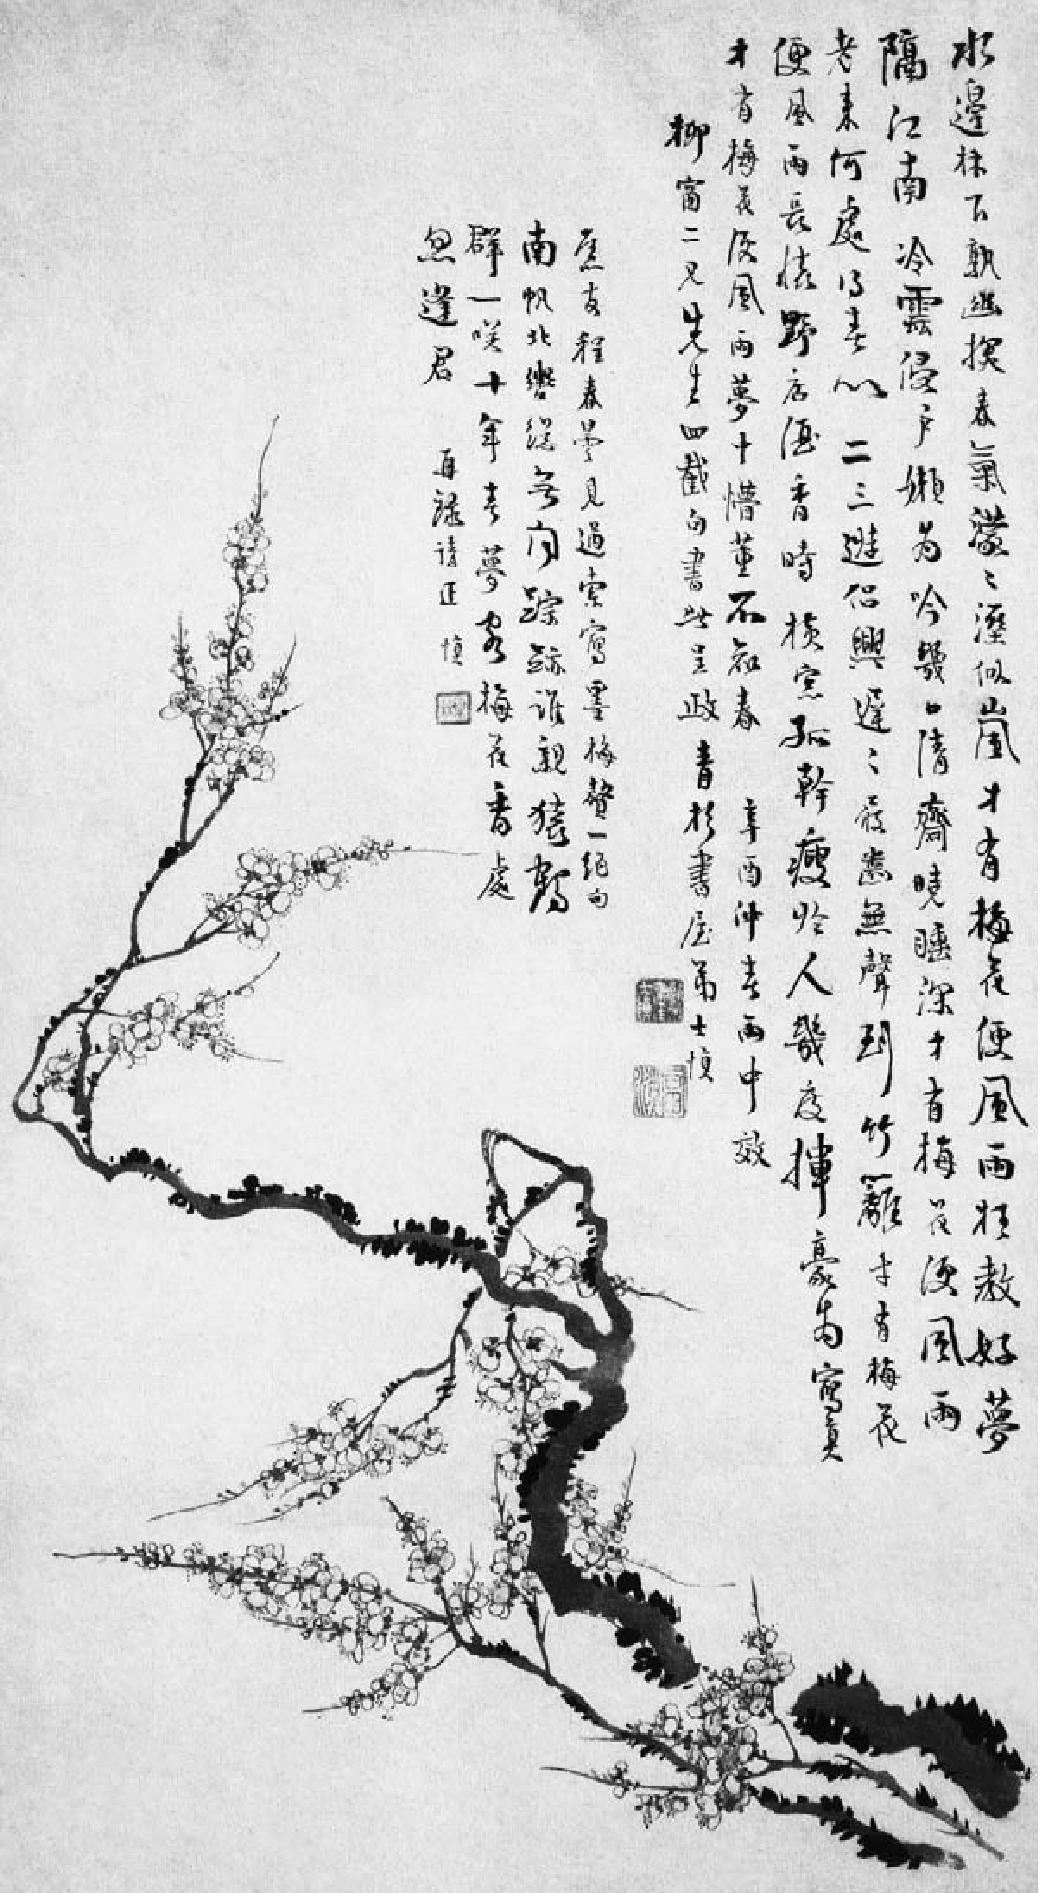 水邊林下孰幽探春氣濛〻溼似嵐才有梅花便風雨猶教好夢
隔江南冷雲侵戶嬾為吟幾日清齋曉睡深才有梅花便風雨
老來何處得春心二三遊侶興遲〻屐齒無聲到竹籬才有梅花
便風雨長懷野店酒香時橫窓孤幹瘦於人幾度揮豪為寫真
才有梅花便風雨夢中惜薰不知春 辛酉仲春雨中效
柳窗二兄先生四截句書此呈政 青杉書屋弟士慎
舊友程春曇見過索寫墨梅贅一絕句
南帆北轡從無間踪跡誰親猿鶴
群一咲十年春夢客梅花香處
忽逢君 再錄請正 慎